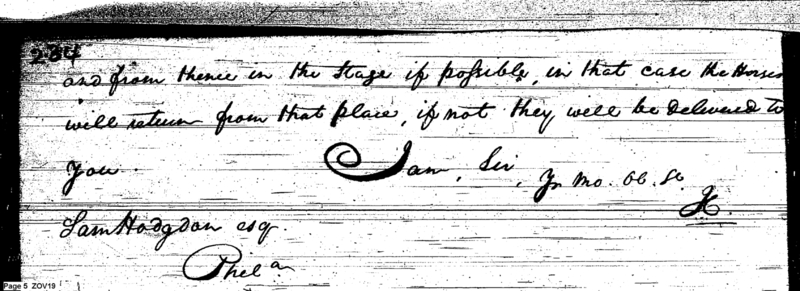 234
and from thence in the Stage if possible, in that case the Horses
will return from that place, if not they will be delivered to
you. I am, Sir, Yr Mo. Ob. St.
Sam Hodgdon esq.
Phila
Page 5 ZOV19